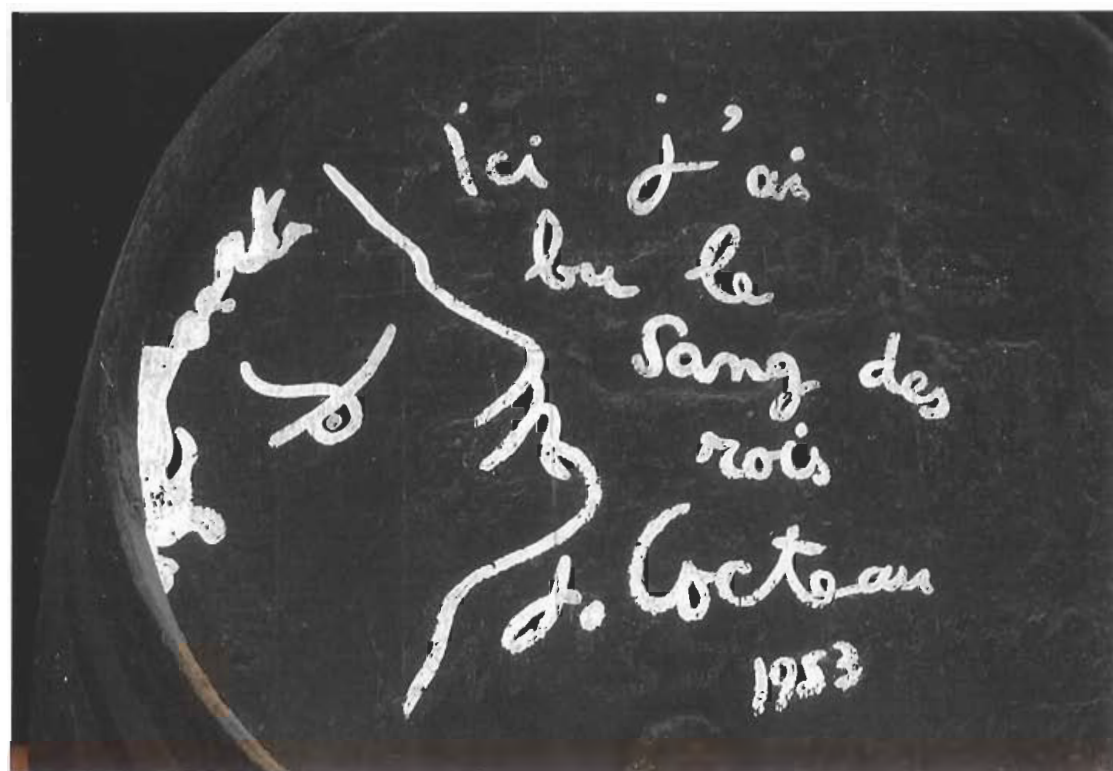 Ici j'ai
bu le
Sang des
rois
J. Cocteau
1953